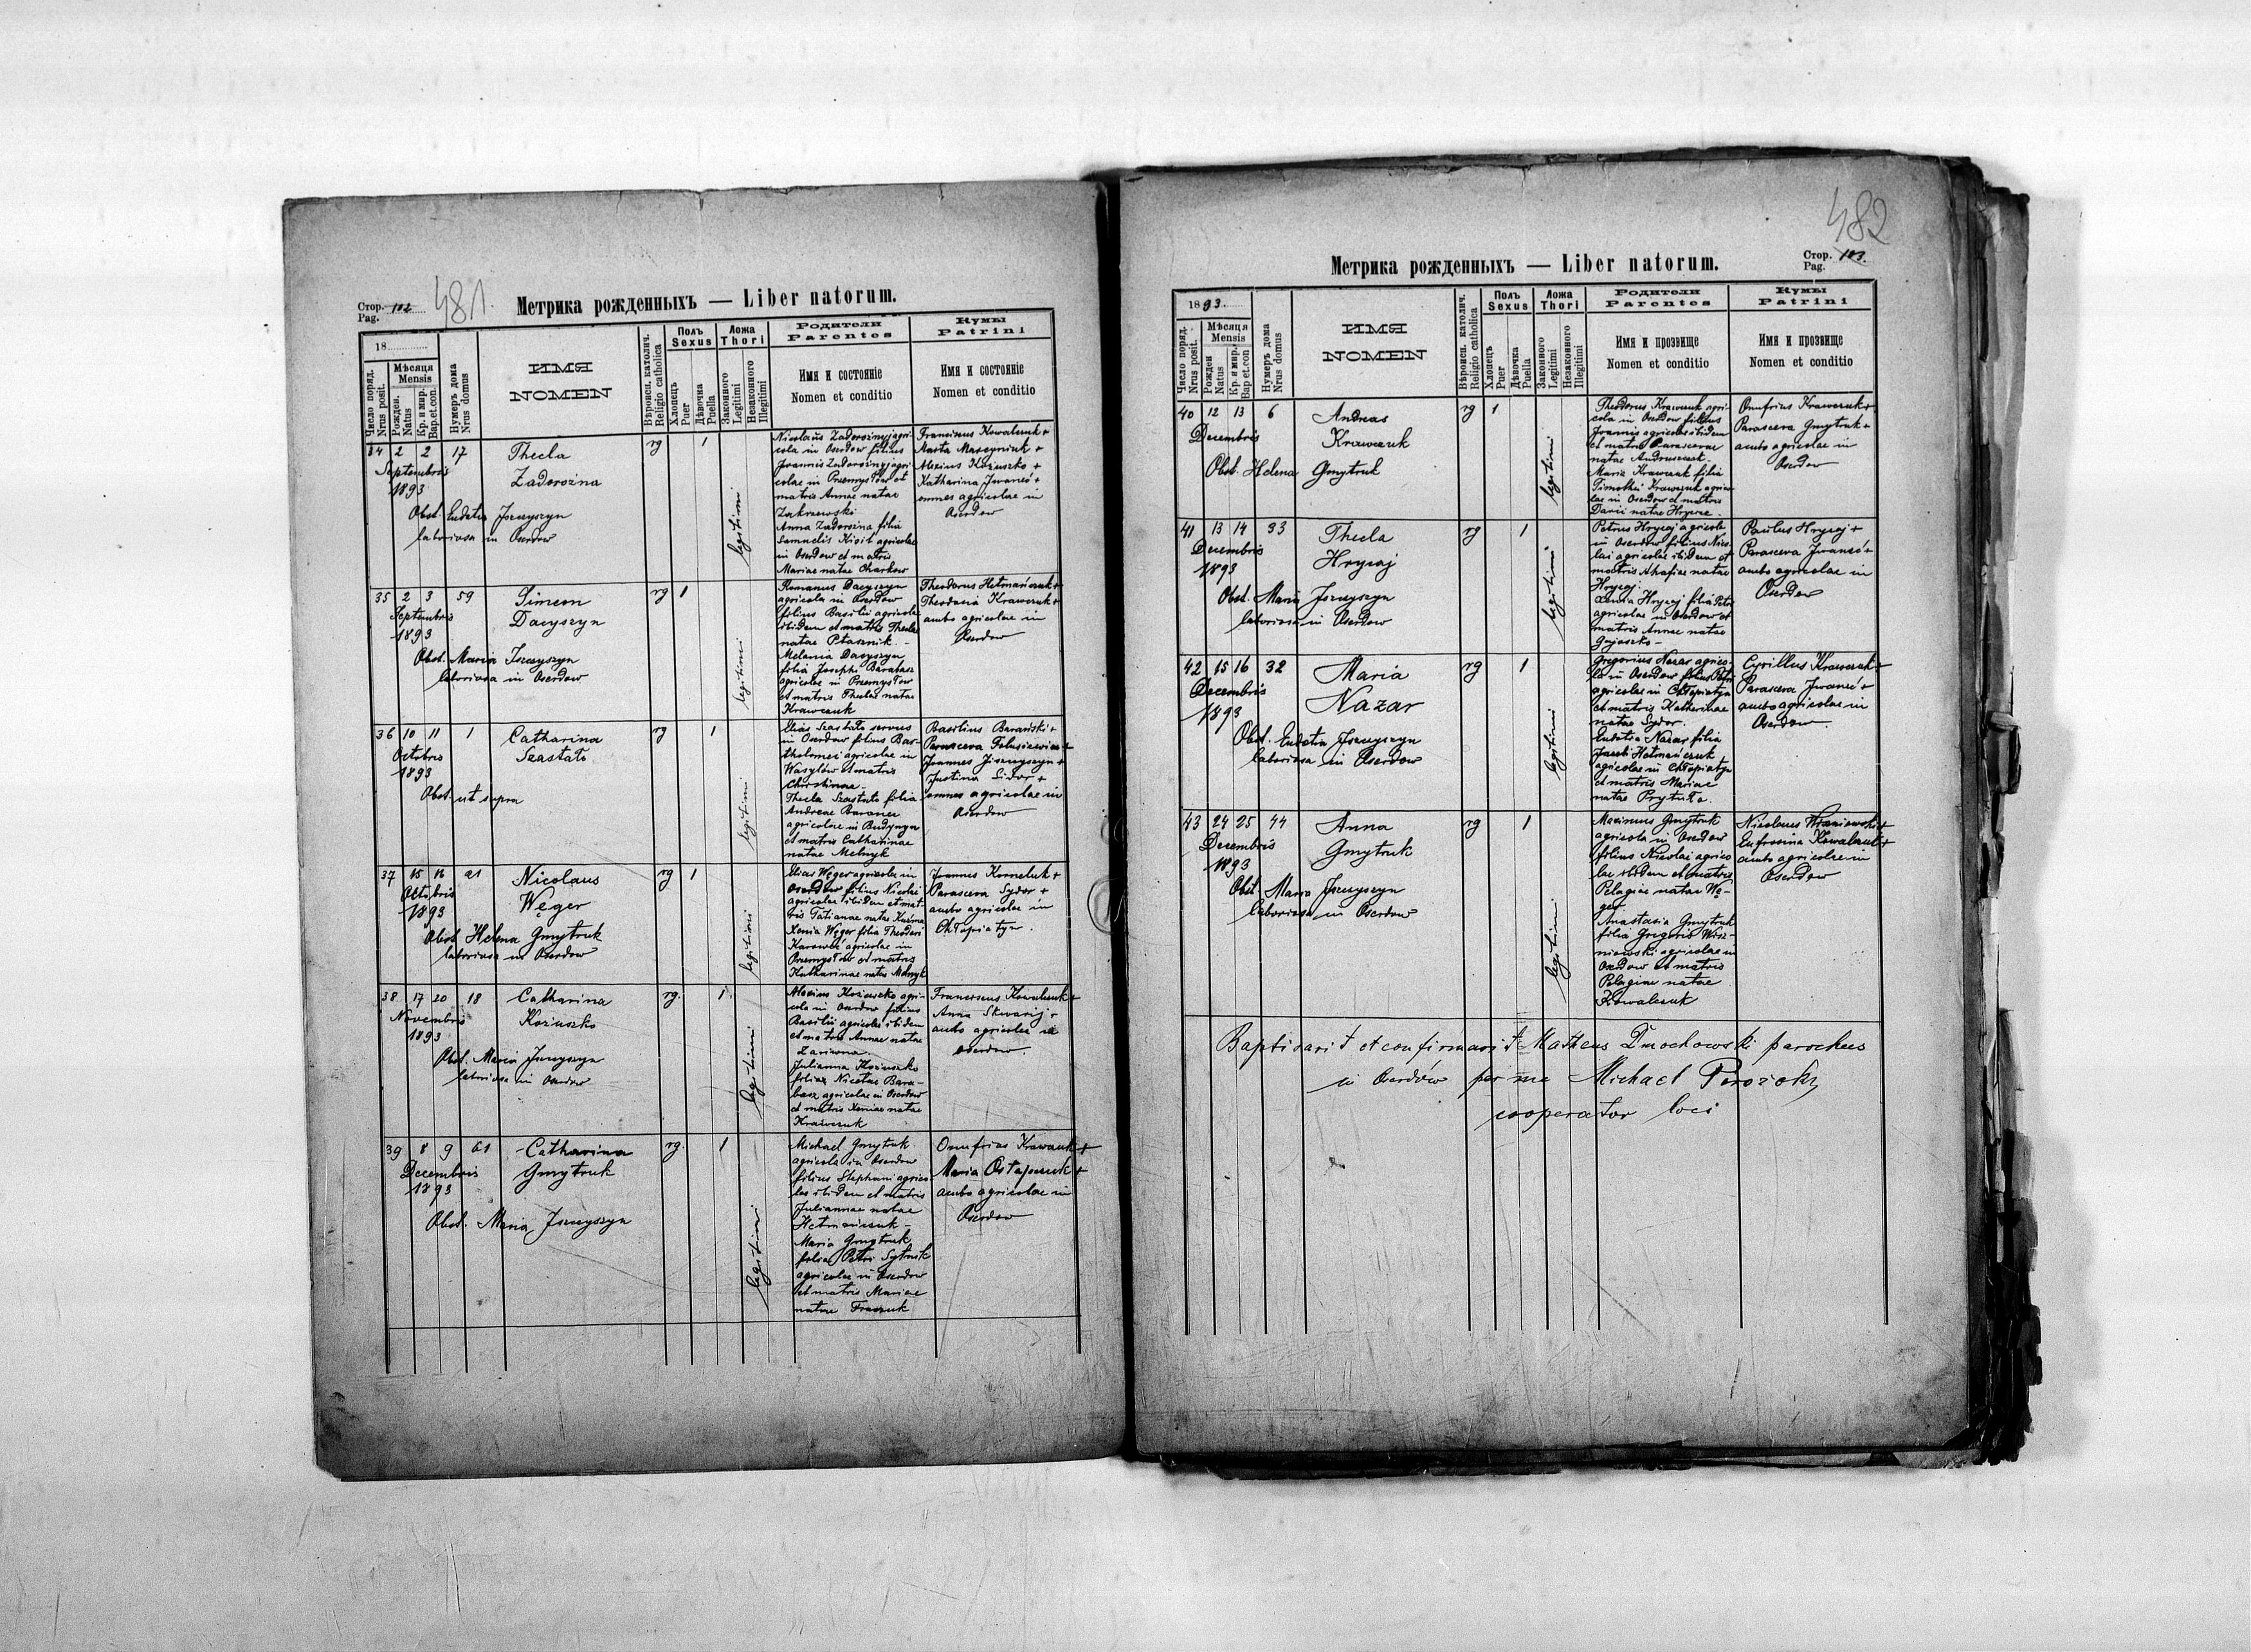 Стор. 102
Pag.
481.
Метрика рожденныхъ — Liber natorum.
18
Число поряд.
Nrus posit.
Мѣсяця
Mensis
Рожден.
Natus
Кр. и мир.
Bap. et. con.
Нумеръ дома
Nrus domus
ИМЯ
NOMEN
Вѣроисп. католич.
Religio catholica
Полъ
Sexus
Хлопецъ
Puer
Дѣвочка
Puella
Ложа
Thori
Законного
Legitimi
Незаконного
Illegitimi
Родители
Parentes
Имя и состояніе
Nomen et conditio
Кумы
Patrini
Имя и состояніе
Nomen et conditio
34 2 2 17 Thecla rg 1
Septembris Zadorożna
1893
Obst. Eudotia Jszczyszyn
laboriosa in Oserdow
legitimi
Nicolaus Zadorożnyj agri-
cola in Oserdow filius
Joannis Zadorożnyj agri-
colae in Przemysłow et
matris Annae natae
Zakrzewski
Anna Zadorożna filia
Samuelis Kisit agricolae
in Oserdow et matris
Mariae natae Charkow
Franciscus Kowalczuk +
Marta Marcyniuk +
Alexius Kożuszko +
Katharina Jwaneć +
omnes agricolae in
Oserdow
35 2 3 59 Simeon rg 1
Septembris Dacyszyn
1893
Obst. Maria Jszczyszyn
laboriosa in Oserdow
legitimi
Romanus Dacyszyn
agricola in Oserdow
filius Basilii agricolae
ibidem et matris Theclae
natae Ptasznik
Melania Dacyszyn
filia Josephi Barabasz
agricolae in Przemysłow
et matris Theclae natae
Krawczuk
Theodorus Hetmańczuk +
Theodosia Krawczuk +
ambo agricolae in
Oserdow
36 10 11 1 Catharina rg 1
Octobris Szastało
1893
Obst. ut supra
legitimi
Elias Szastało servus
in Oserdow filius Bar-
tholomei agricolae in
Wasylów et matris
Christinae
Thecla Szastało filia
Andreae Baraniec
agricolae in Budynyn
et matris Catharinae
natae Melnyk
Basilius Barański +
Parasceva Felusiewicz +
Joannes Jszczyszyn +
Justina Sidor +
omnes agricolae in
Oserdow
37 15 16 21 Nicolaus rg 1
Octobris Węger
1893
Obst. Helena Gmytruk
laboriosa in Oserdow
legitimi
Elias Węger agricola in
Oserdow filius Nicolai
agricolae ibidem et mat-
ris Tatianae natae Kuźma
Xenia Węger filia Theodori
Karoweć agricolae in
Przemysłow et matris
Katharinae natae Melnyk
Joannes Korneluk +
Parasceva Sydor +
ambo agricolae in
Chłopiatyn.
38 17 20 18 Catharina rg. 1
Novembris Kożuszko
1893
Obst. Maria Jszczyszyn
laboriosa in Oserdow
legitimi
Alexius Kożuszko agri-
cola in Oserdow filius
Basilii agricolae ibidem
et matris Annae natae
Julianna Kożuszko
filia Nicolai Bara-
basz agricolae in Oserdow
et matris Xeniae natae
Krawczuk
Franciscus Kowalczuk +
Anna Skwarij +
ambo agricolae in
Oserdow.
39 8 9 61 Catharina rg. 1
Decembris Gmytruk
1893
Obst. Maria Jszczyszyn
legitimi
Michael Gmytruk
agricola in Oserdow
filius Stephani agrico-
lae ibidem et matris
Juliannae natae
Hetmańczuk
Maria Gmytruk
filia Petri Sytnik
agricolae in Oserdow
et matris Mariae
natae Fraczuk
Onufrius Krawczuk +
Maria Ostapczuk +
ambo agricolae in
Oserdow
482
Метрика рожденныхъ — Liber natorum.
Стор. 103.
Pag.
1893.
Число поряд.
Nrus posit.
Мѣсяця
Mensis
Рожден
Natus
Кр. и мир.
Bap. et. con
Нумеръ дома
Nrus domus
ИМЯ
NOMEN
Вѣроисп. католич.
Religio catholica
Полъ
Sexus
Хлопецъ
Puer
Дѣвочка
Puella
Ложа
Thori
Законного
Legitimi
Незаконного
Illegitimi
Родители
Parentes
Имя и прозвище
Nomen et conditio
Кумы
Patrini
Имя и прозвище
Nomen et conditio
40 12 13 6 Andreas rg 1
Decembris Krawczuk
Obst. Helena Gmytruk
legitimi
Theodorus Krawczuk agri-
cola in Oserdow filius
Joannis agricolae ibidem
et matris Parascevae
natae Andruszczak
Maria Krawczuk filia
Timothei Krawczuk agrico-
lae in Oserdow et matris
Dariae natae Hrycaj.
Onufrius Krawczuk +
Parasceva Gmytruk +
ambo agricolae in
Oserdow
41 13 14 33 Thecla rg 1
Decembris Hrycaj
1893
Obst. Maria Jszczyszyn
laboriosa in Oserdow
legitimi
Petrus Hrycaj agricola
in Oserdow filius Nico-
lai agricolae ibidem et
matris Ahafiae natae
Hrycaj.
Xenia Hrycaj filia Petri
agricolae in Oserdow et
matris Annae natae
Paulus Hrycaj +
Parasceva Jwaneć +
ambo agricolae in
Oserdow
42 15 16 32 Maria rg 1
Decembris Nazar
1893
Obst. Eudotia Jszczyszyn
laboriosa in Oserdow
legitimi
Gregorius Nazar agrico-
la in Oserdow filius Petri
agricolae in Chłopiatyn
et matris Katherinae
natae Sydor.
Eudotia Nazar filia
Jacobi Hetmańczuk
agricolae in Chłopiatyn
et matris Mariae
natae Prytuła.
Cyrillus Krawczuk +
Parasceva Jwaneć +
ambo agricolae in
Oserdow.
43 24 25 44 Anna rg 1
Decembris Gmytruk
1893
Obst. Maria Jszczyszyn
laboriosa in Oserdow
legitimi
Maximus Gmytruk
agricola in Oserdow
filius Nicolai agrico
lae ibidem et matris
Pelagiae natae Wę-
ger
Anastasia Gmytruk
filia Grigorii Wisz-
niowski agricolae in
Oserdow et matris
Pelagiae natae
Kowalczuk
Nicolaus Wiszniowski +
Eufrosina Kowalczuk +
ambo agricolae in
Oserdow
Baptisavit et confirmavit Matheus Durochowski parochus
in Oserdów per me Michael Perożoky
cooperator loci